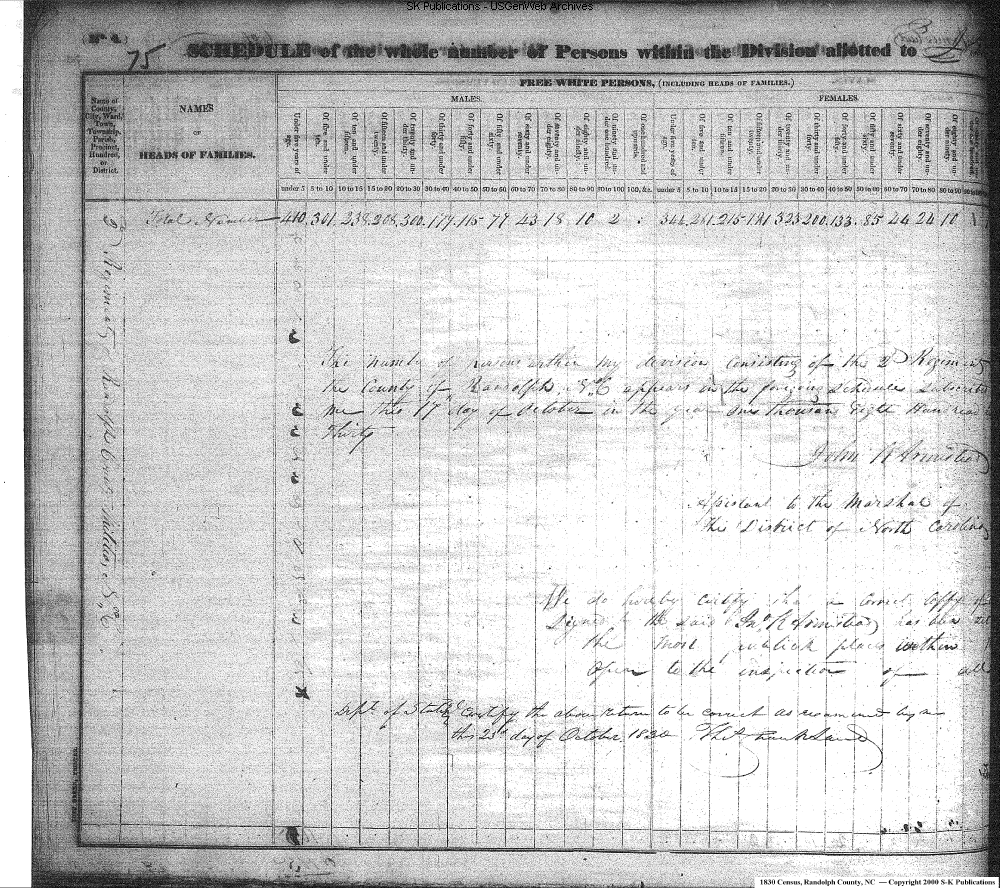 SK Publications - USGenWeb Archives
(No. 4.)
75
SCHEDULE of the whole number of Persons within the Division allotted to
FREE WHITE PERSONS, (INCLUDING HEADS OF FAMILIES.)
MALES. FEMALES.
Name of County, City, Ward, Town, Township, Parish, Precinct, Hundred, or District.
NAMES
OF
HEADS OF FAMILIES.
Under five years of age. Of five and under ten. Of ten and under fifteen. Of fifteen and under twenty. Of twenty and under thirty. Of thirty and under forty. Of forty and under fifty. Of fifty and under sixty. Of sixty and under seventy. Of seventy and under eighty. Of eighty and under ninety. Of ninety and under one hundred. Of one hundred and upwards. Under five years of age. Of five and under ten. Of ten and under fifteen. Of fifteen and under twenty. Of twenty and under thirty. Of thirty and under forty. Of forty and under fifty. Of fifty and under sixty. Of sixty and under seventy. Of seventy and under eighty. Of eighty and under ninety.
under 5 5 to 10 10 to 15 15 to 20 20 to 30 30 to 40 40 to 50 50 to 60 60 to 70 70 to 80 80 to 90 90 to 100 100, &c. under 5 5 to 10 10 to 15 15 to 20 20 to 30 30 to 40 40 to 50 50 to 60 60 to 70 70 to 80 80 to 90
Total 410 301 238 208 300 179 115 77 43 18 10 2 344 261 215 191 323 200 133 85 44 24 10 1
The number of persons within my division consisting of the 2d Regiment
the County of Randolph N.C appears in the foregoing schedule subscribed
me this 17th day of October in the year One thousand Eight Hundred
Thirty
John K Armistead
Assistant to the Marshal of
the District of North Carolina
We do hereby certify that a correct Copy of
Signed by the said Jno. K Armistead has been set
the most publick places within
Open to the inspection of all
Dept. of State certify the above return to be correct as examined by me
this 23d day of October 1830
1830 Census, Randolph County, NC — Copyright 2000 S-K Publications